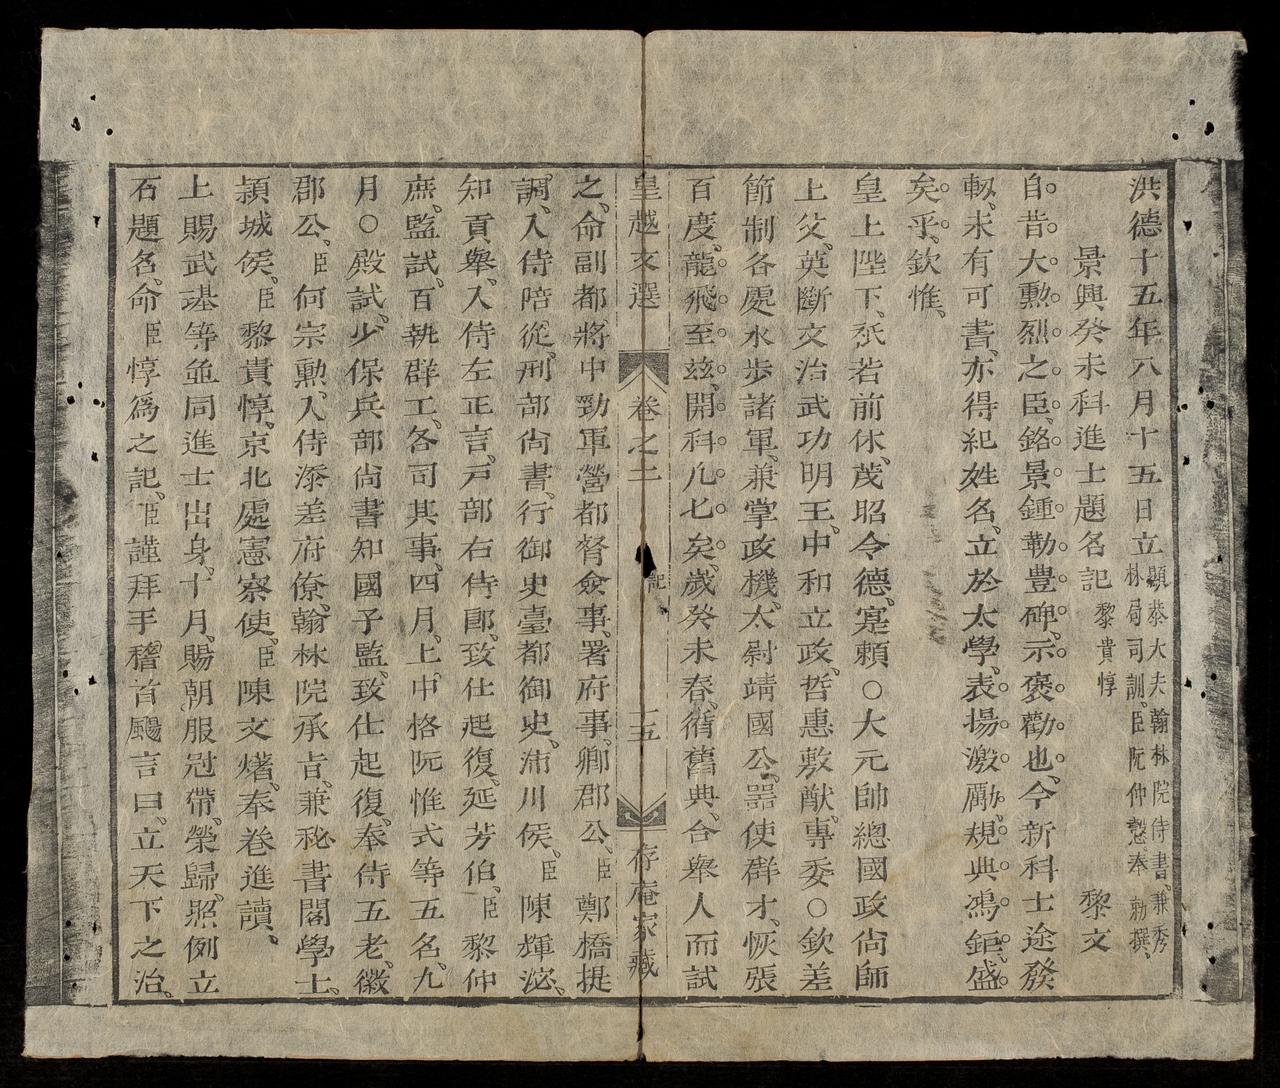 洪德十五年八月十五日立顯恭大夫翰林院侍書、兼秀林局司訓、臣阮仲𢡟奉 勅撰、
景興癸未科進士題名記 黎貴惇 黎文
自昔大勳烈之臣、銘景鍾、勒豊碑、示褒勸也、今新科士途發
軔、未有可書、亦得紀姓名、立於太學、表揚激勵、規典鴻鉅盛
矣乎、欽惟、
皇上陛下、烝若前休、茂昭令德、寔賴○大元帥總國政尚師
上父、英斷文治武功明王、中和立政、哲惠敷猷、專委○欽差
節制各處水步諸軍、兼掌政機、太尉靖國公、器使群才、恢張
百度、龍飛至茲、開科凡七矣、歲癸未春、循舊典、合舉人而試
皇越文選 卷之二 記 十五 存庵家藏
之、命副都將中勁軍營都督僉事、署府事、卿郡公、臣鄭橋提
調、入侍陪從、刑部尚書、行御史臺都御史、沛川侯、臣陳輝泌、
知貢舉、入侍左正言、戶部右侍郎、致仕起復、延芳伯、臣黎仲
庶、監試、百執群工、各司其事、四月、上、中格阮惟式等五名、九
月○殿試、少保兵部尚書知國子監、致仕起復、奉侍五老、徽
郡公、臣何宗勳、入侍添差府僚、翰林院承旨、兼秘書閣學士、
頴城侯、臣黎貴惇、京北處憲察使、臣陳文𤏸、奉卷進讀、
上賜武基等並同進士出身、十月、賜朝服冠帶、榮歸、照例立
石題名、命臣惇為之記、臣謹拜手稽首颺言曰、立天下之治、